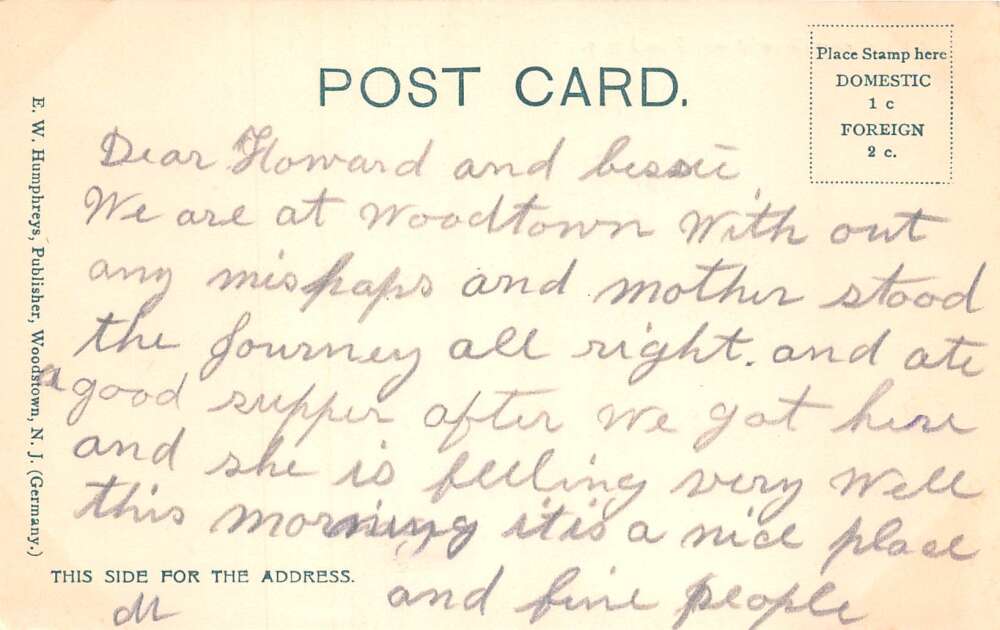 POST CARD.
Place Stamp here
DOMESTIC
1 c
FOREIGN
2 c.
E. W. Humphreys, Publisher, Woodstown, N. J. (Germany.)
Dear Howard and bessie
We are at Woodtown With out
any mishaps and mother stood
the Journey all right. and ate
a good supper after we got here
and she is feeling very well
this morning it is a nice place
and fine people
THIS SIDE FOR THE ADDRESS.